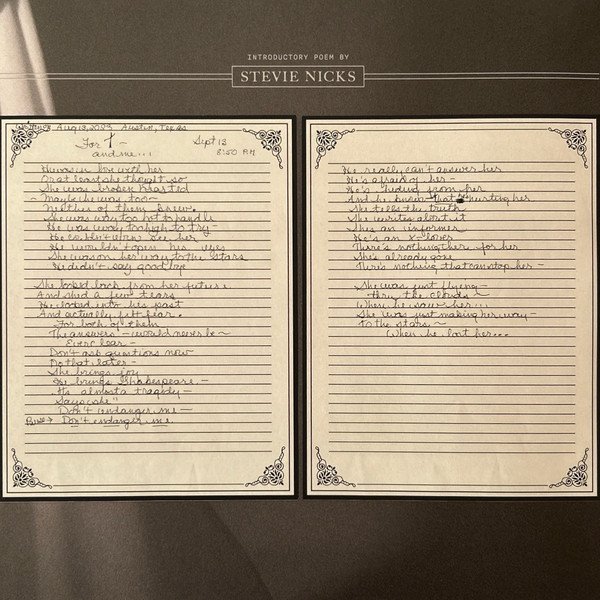 INTRODUCTORY POEM BY
STEVIE NICKS
Written Aug 13, 2023 Austin, Texas
For T —
and me...
Sept 13
8:50 PM
He was in love with her
Or at least she thought so
She was broken hearted
— Maybe he was too —
Neither of them knew
She was way too hot to handle
He was way too high to try —
He couldn't even see her
He wouldn't open his eyes
She was on her way to the stars
He didn't say goodbye
She looked back from her future
And shed a few tears
He looked into his past
And actually felt fear.
For both of them
The answers — would never be ~
Ever clear —
Don't ask questions now
Do that later —
She brings joy
He brings Shakespeare —
It's almost a tragedy —
Says "she"
Don't endanger me —
Don't endanger me
He really can't answer her
He's afraid of her —
He's hiding from her
And he knows that he's hurting her
She tells the truth
She writes about it
She's an informer
He's an x-lover
There's nothing there for her
She's already gone
There's nothing that can stop her —
She was just flying —
thru the clouds
When he saw her...
She was just making her way —
To the stars ~
When he lost her...